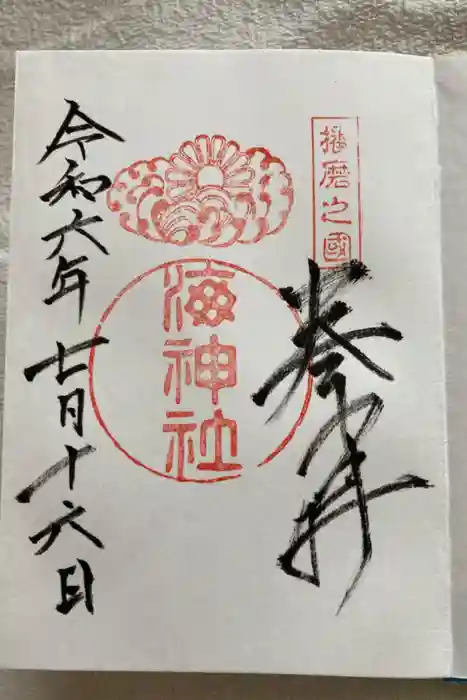 播磨之國
奉拝
海神社
令和六年七月十六日